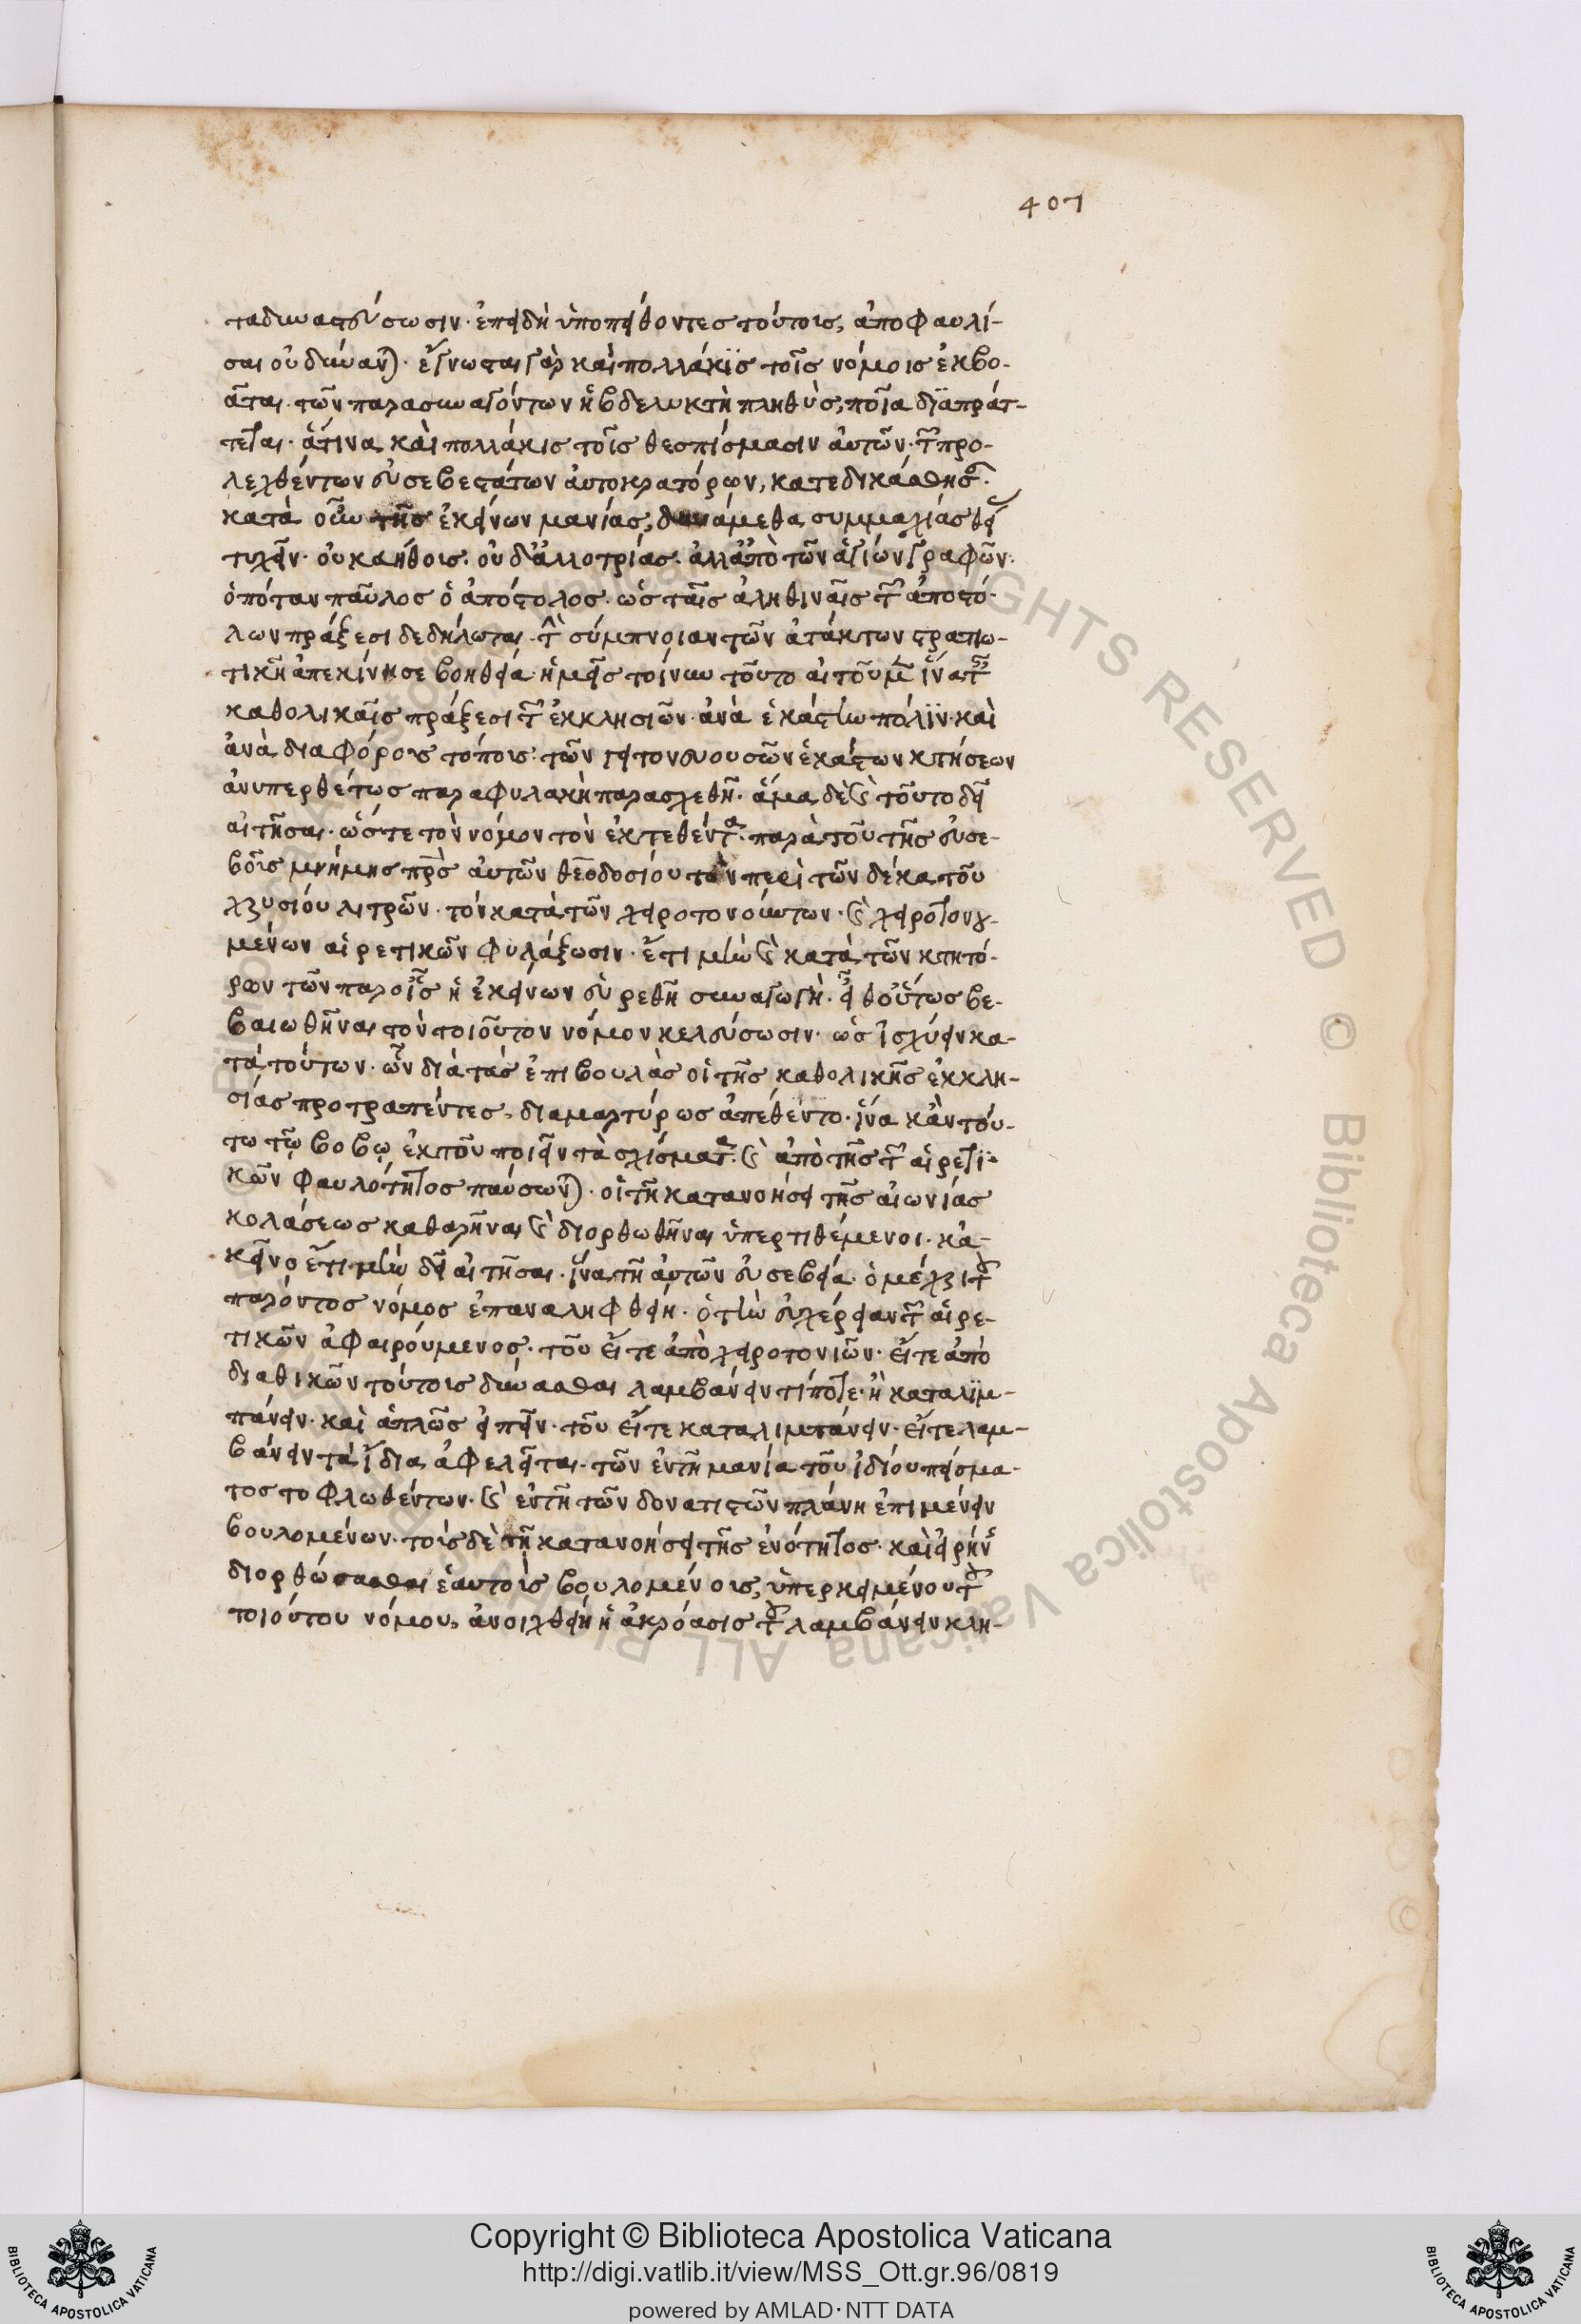 407
ταδυναστεύσωσιν· ἐπειδὴ ὑποπείθοντες τούτοις, ἀποφαυλί-
σαι οὐ δύναν). ἔγνωσται γὰρ καὶ πολλάκϊς τοῖς νόμοις ἐκβο-
ᾶται. τῶν παρασυναγόντων ἡ βδελυκτὴ πληθὺς, ποῖα διαπράτ-
τεται· ἅτινα καὶ πολλάκις τοῖς θεσπίσμασιν αὐτῶν. τῶν προ-
λεχθέντων εὐσεβεστάτων αὐτοκρατόρων, κατεδικάσθησαν.
κατὰ οὖν τῆς ἐκείνων μανίας, δυνάμεθα συμμαχίας θείας
τυχεῖν· οὐκ ἀήθοις. οὐδ' ἀλλοτρίας. ἀλλ' ἀπὸ τῶν ἁγίων γραφῶν·
ὁπόταν παῦλος ὁ ἀπόστολος· ὡς ταῖς ἀληθιναῖς τῶν ἀποστό-
λων πράξεσι δεδήλωται. τὴν σύμπνοιαν τῶν ἀτάκτων στρατιω-
τικῇ ἀπεκίνησε βοηθείᾳ· ἡμεῖς τοίνυν τοῦτο αἰτοῦμεν ἵνα ταῖς
καθολικαῖς πράξεσι τῶν ἐκκλησιῶν. ἀνὰ ἑκάστην πόλϊν· καὶ
ἀνὰ διαφόροις τόποις. τῶν γειτονευουσῶν ἑκάστων κτήσεων
ἀνυπερθέτως παραφυλακὴ παρασχεθῇ. ἅμα δὲ καὶ τοῦτο δεῖ
αἰτῆσαι. ὥστε τὸν νόμον τὸν ἐκτεθέντα. παρὰ τοῦ τῆς εὐσε-
βοῦς μνήμης πρς αὐτῶν θεοδοσίου τὸν περὶ τῶν δέκα τοῦ
χρυσίου λιτρῶν· τὸν κατὰ τῶν χειροτονούντων. καὶ χειροτονου-
μένων αἱρετικῶν φυλάξωσιν· ἔτι μὴν καὶ κατὰ τῶν κτητό-
ρων τῶν παρ' οἷς ἡ ἐκείνων εὑρεθῇ συναγωγὴ. εἶθ' οὕτως βε-
βαιωθῆναι τὸν τοιοῦτον νόμον κελεύσωσιν· ὡς ἰσχύειν κα-
τὰ τούτων. ὧν διὰ τὰς ἐπιβουλὰς οἱ τῆς καθολικῆς ἐκκλη-
σίας προτραπέντες, διαμαρτύρως ἀπέθεντο. ἵνα κἂν τού-
τω τῷ φοβῳ ἐκ τοῦ ποιεῖν τὰ σχίσματα. καὶ ἀπὸ τῆς τῶν αἱρετι-
κῶν φαυλότητος παύσων). οἱ τῇ κατανοήσει τῆς αἰωνίας
κολάσεως καθαρῆναι καὶ διορθωθῆναι ὑπερτιθέμενοι. κἀ-
κεῖνο ἔτι μὴν δεῖ αἰτῆσαι. ἵνα τῇ αὐτῶν εὐσεβείᾳ. ὁ μέχρι τοῦ
παρόντος νόμος ἐπαναληφθείη. ὁ τὴν εὐχέρειαν τῶν αἱρε-
τικῶν ἀφαιρούμενος. τοῦ εἴτε ἀπὸ χειροτονιῶν. εἴτε ἀπὸ
διαθικῶν τούτοις δύνασθαι λαμβάνειν τίποτε. ἢ καταλϊμ-
πάνειν· καὶ ἁπλῶς εἰπεῖν. τοῦ εἴτε καταλιμπάνειν. εἴτε λαμ-
βάνειν τὰ ἴδια ἀφελεῖται. τῶν ἐν τῇ μανίᾳ τοῦ ἰδίου πείσμα-
τος τοφλωθέντων. καὶ ἐν τῇ τῶν δονατιστῶν πλάνη ἐπιμένειν
βουλομένων. τοῖς δὲ τῇ κατανοήσει τῆς ἑνότητος. καὶ εἰρήνης
διορθώσασθαι ἑαυτοὶς βουλομένοις, ὑπερκειμένου τοῦ
τοιούτου νόμου, ἀνοιχθείη ἡ ἀκρόασις τοῦ λαμβάνειν κλη-
Copyright © Biblioteca Apostolica Vaticana
http://digi.vatlib.it/view/MSS_Ott.gr.96/0819
powered by AMLAD·NTT DATA